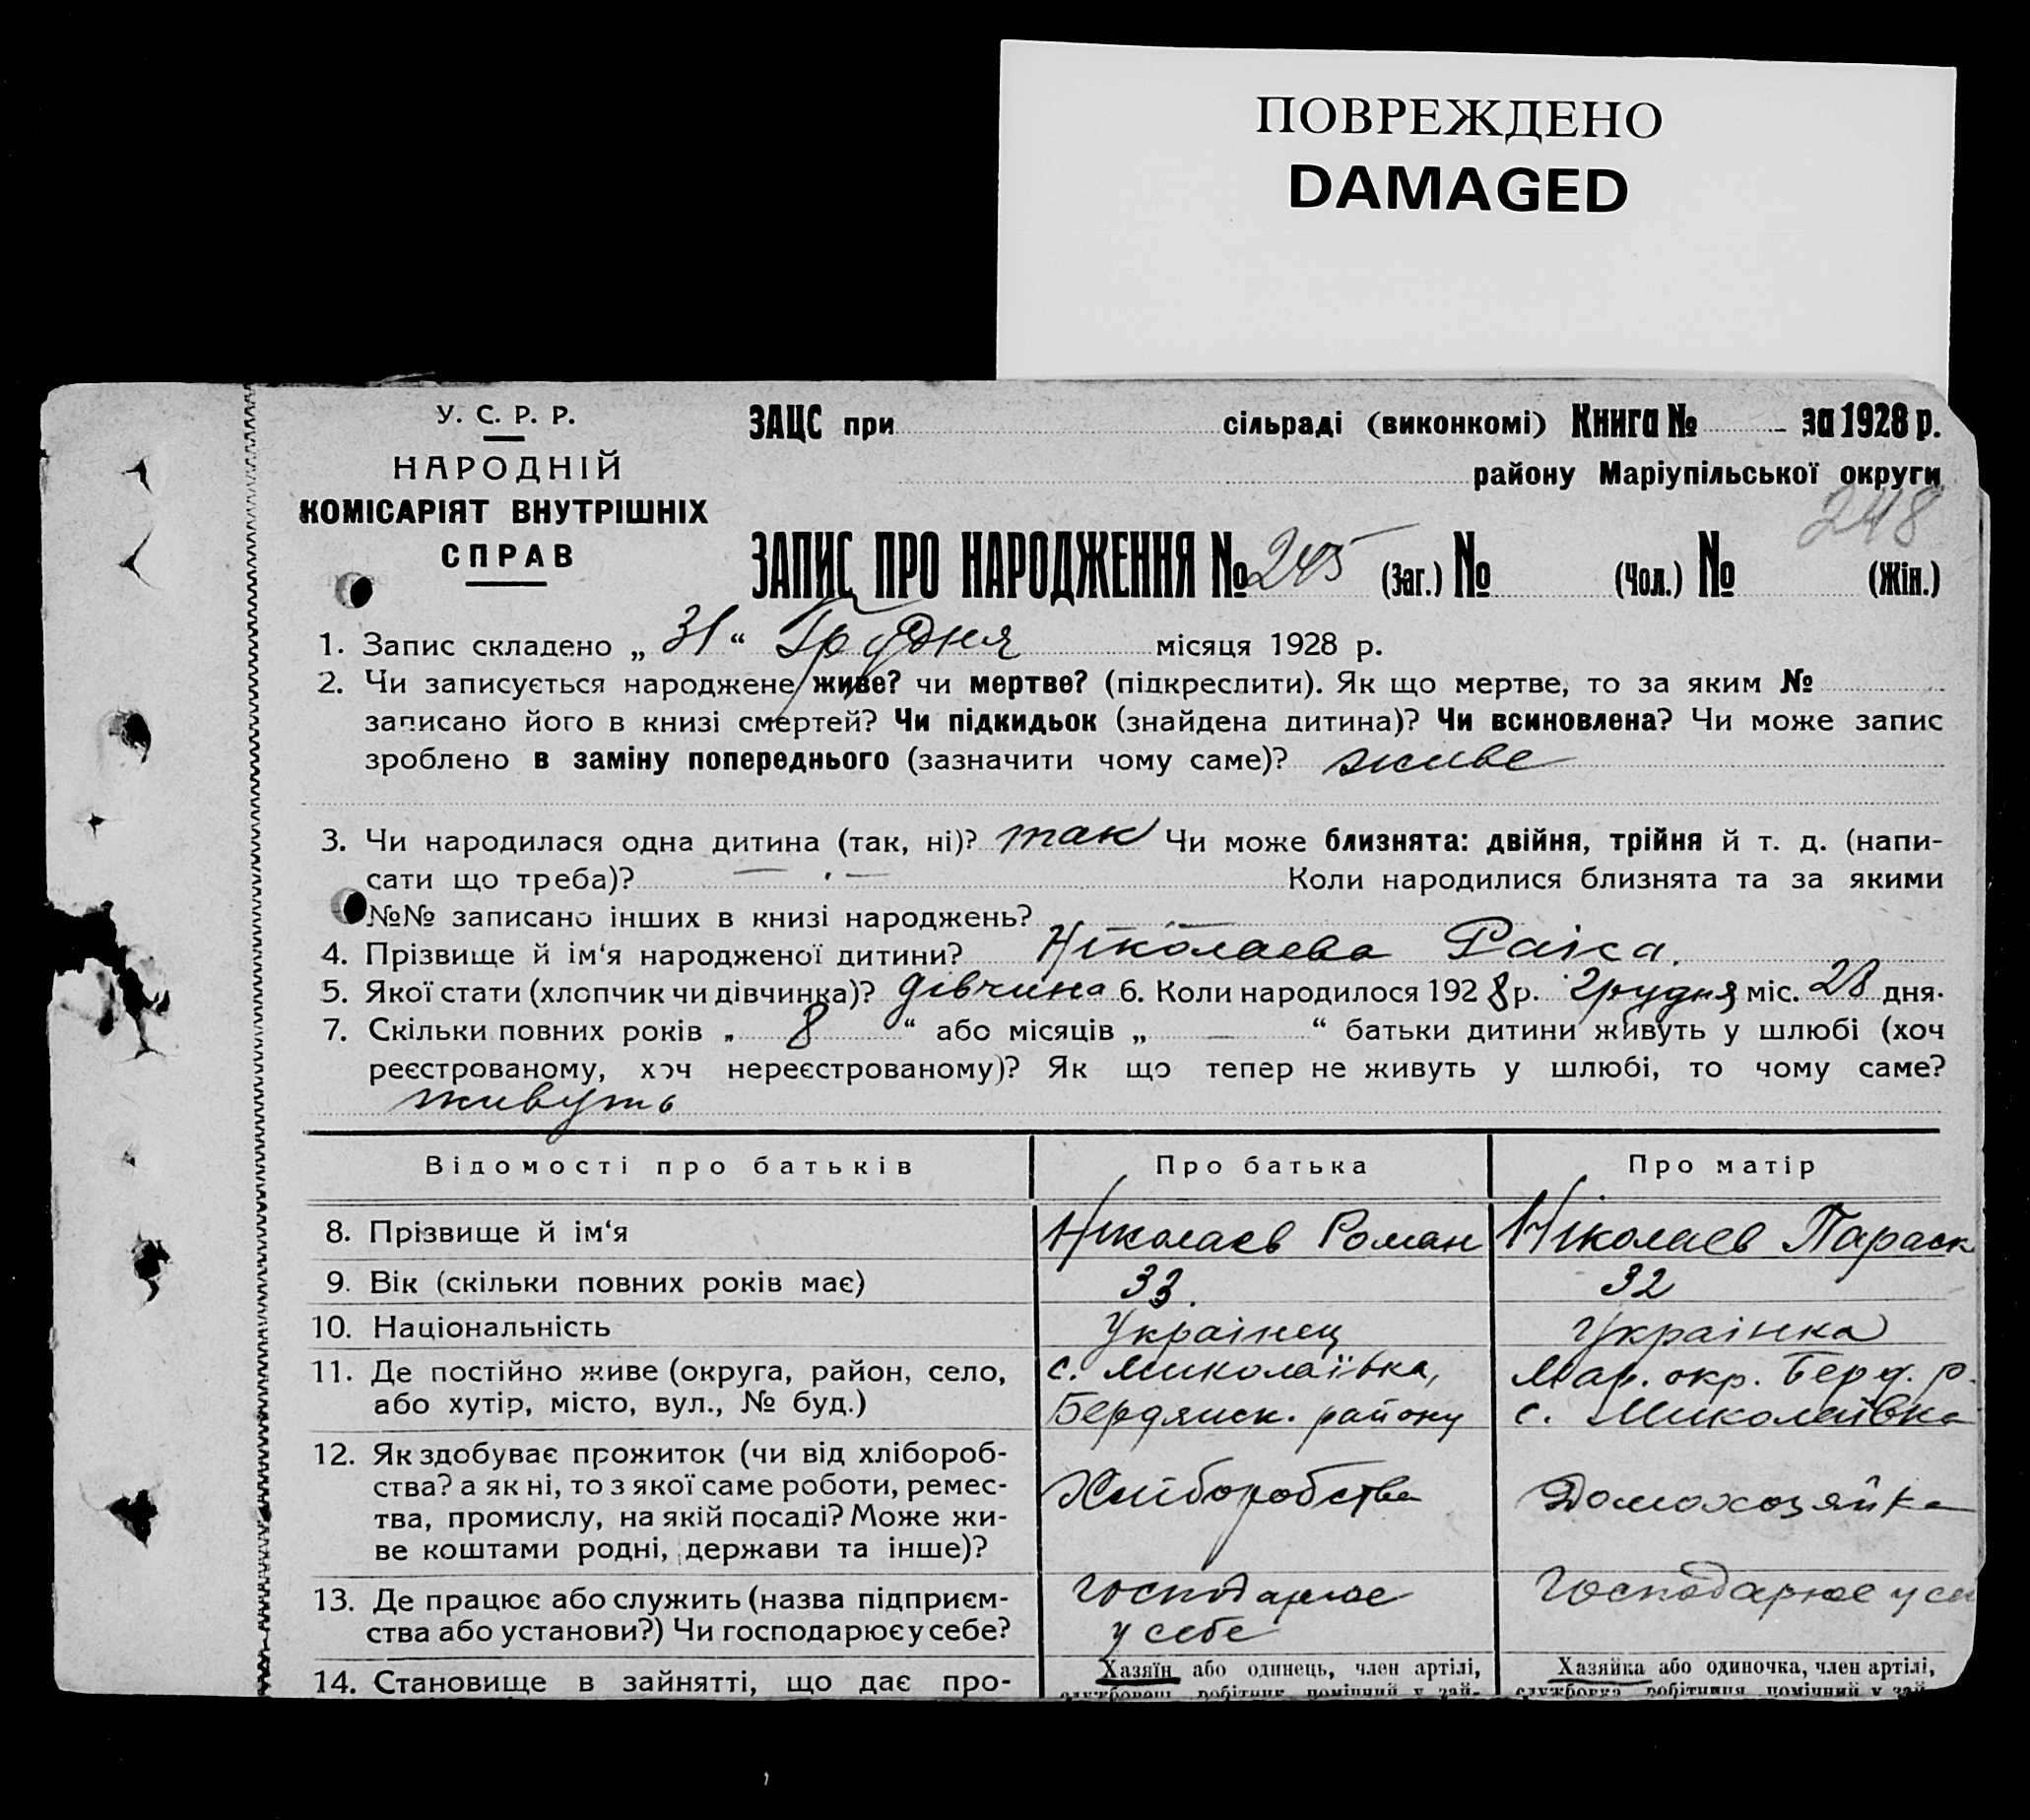 ПОВРЕЖДЕНО
DAMAGED
У. С. Р. Р.
НАРОДНІЙ
КОМІСАРІЯТ ВНУТРІШНІХ
СПРАВ
ЗАЦС при сільраді (виконкомі) Книга № за 1928 р.
району Маріупільської округи
248
ЗАПИС ПРО НАРОДЖЕННЯ № 245 (Заг.) № (Чол.) № (Жін.)
1. Запис складено „ 31 “ Грудня місяця 1928 р.
2. Чи записується народжене живе? чи мертве? (підкреслити). Як що мертве, то за яким №
записано його в книзі смертей? Чи підкидьок (знайдена дитина)? Чи всиновлена? Чи може запис
зроблено в заміну попереднього (зазначити чому саме)? живе
3. Чи народилася одна дитина (так, ні)? так Чи може близнята: двійня, трійня й т. д. (напи-
сати що треба)? — · — Коли народилися близнята та за якими
№№ записано інших в книзі народжень? —
4. Прізвище й ім‘я народженої дитини? Ніколаева Раіса.
5. Якої стати (хлопчик чи дівчинка)? дівчина 6. Коли народилося 1928 р. грудня міс. 28 дня.
7. Скільки повних років „ 8 “ або місяців „ — “ батьки дитини живуть у шлюбі (хоч
реєстрованому, хоч нереєстрованому)? Як що тепер не живуть у шлюбі, то чому саме?
живуть
Відомості про батьків Про батька Про матір
8. Прізвище й ім‘я Ніколаев Роман Ніколаев Параск
9. Вік (скільки повних років має) 33. 32
10. Національність Украінец Украінка
11. Де постійно живе (округа, район, село, с. Миколаївка, Мар. окр. Берд. р.
або хутір, місто, вул., № буд.) Бердянск. району с. Миколаївка
12. Як здобуває прожиток (чи від хлібороб-
ства? а як ні, то з якої саме роботи, ремес- Хліборобства Домохозяйка
тва, промислу, на якій посаді? Може жи-
ве коштами родні, держави та інше)?
13. Де працює або служить (назва підприєм- господарює Господарює у се
ства або установи?) Чи господарює у себе? у себе
14. Становище в зайнятті, що дає про- Хазяїн або одинець, член артілі, Хазяйка або одиночка, член артілі,
службовець, робітник, помічний у зай- службовка, робітниця, помічний у зай-